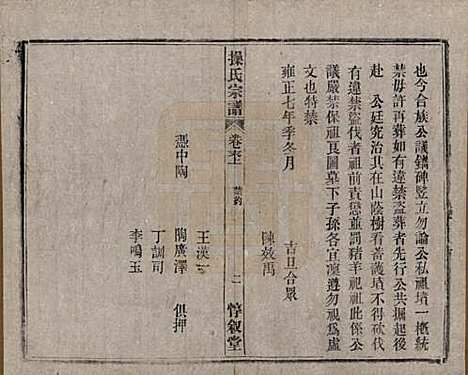 也今合族公議鐫碑竪立勿論公私祖墳一概統
禁毋許再葬如有違禁盜葬者先行公共掘起後
赴　公廷究治其在山蔭樹看蓄護墳不得砍伐
有違禁盜伐者祖前責懲並罰豬羊祀祖此係公
議嚴禁保祖良圖墓下子孫各宜凜遵勿視為虛
文也特禁
雍正七年季冬月
吉旦合眾
陳效禹
操氏宗譜
卷
禁約
二
惇敘堂
王漢一
憑中陶　陶廣澤　俱押
丁訓司
李鳴玉